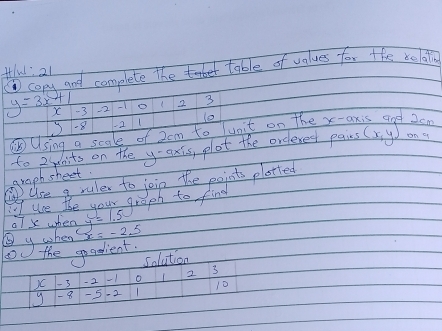 H/W: 21
① copy and complete the table of values for the relation
y = 3x+1
x -3 -2 -1 0 1 2 3
y -8 -2 1 10
Using a scale of 2cm to 1unit on the x-axis and 2cm
to 2 units on the y-axis, plot the ordered pairs (x,y) on a
graph sheet.
Use a ruler to join the points plotted
Use your graph to find
a) x when y = 1.5
b) y when x = -2.5
c) the gradient.
Solution
x -3 -2 -1 0 1 2 3
y -8 -5 -2 1 10